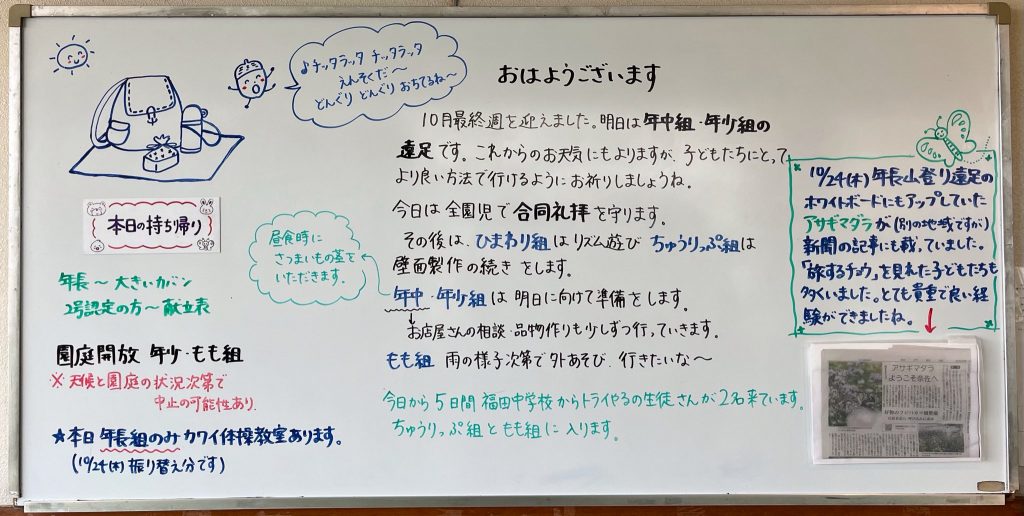 ♪チッタラッタ チッタラッタ
えんそくだ〜
どんぐり どんぐり おちてるね〜
おはようございます
10月最終週を迎えました。明日は年中組・年少組の
遠足です。これからのお天気にもよりますが、子どもたちにとって
より良い方法で行けるようにお祈りしましょうね。
今日は全園児で合同礼拝を守ります。
その後は、ひまわり組はリズム遊び ちゅうりっぷ組は
壁面製作の続きをします。
年中・年少組は明日に向けて準備をします。
お店屋さんの相談・品物作りも少しずつ行っていきます。
もも組 雨の様子次第で外あそび、行きたいな〜
今日から5日間 福田中学校からトライやるの生徒さんが2名来ています。
ちゅうりっぷ組ともも組に入ります。
本日の持ち帰り
年長〜大きいカバン
2号認定の方〜献立表
昼食時に
さつまいもの蒸を
いただきます。
園庭開放 年少・もも組
※天候と園庭の状況次第で
中止の可能性あり
★本日 年長組のみ カワイ体操教室あります。
(10/24(木)振り替え分です)
10/24(木)年長山登り遠足の
ホワイトボードにもアップしていた
アサギマダラが(別の地域ですが)
新聞の記事にも載っていました。
「旅するチョウ」を見れた子どもたちも
多くいました。とても貴重で良い経
験ができましたね。
アサギマダラ
ようこそ奈佐へ